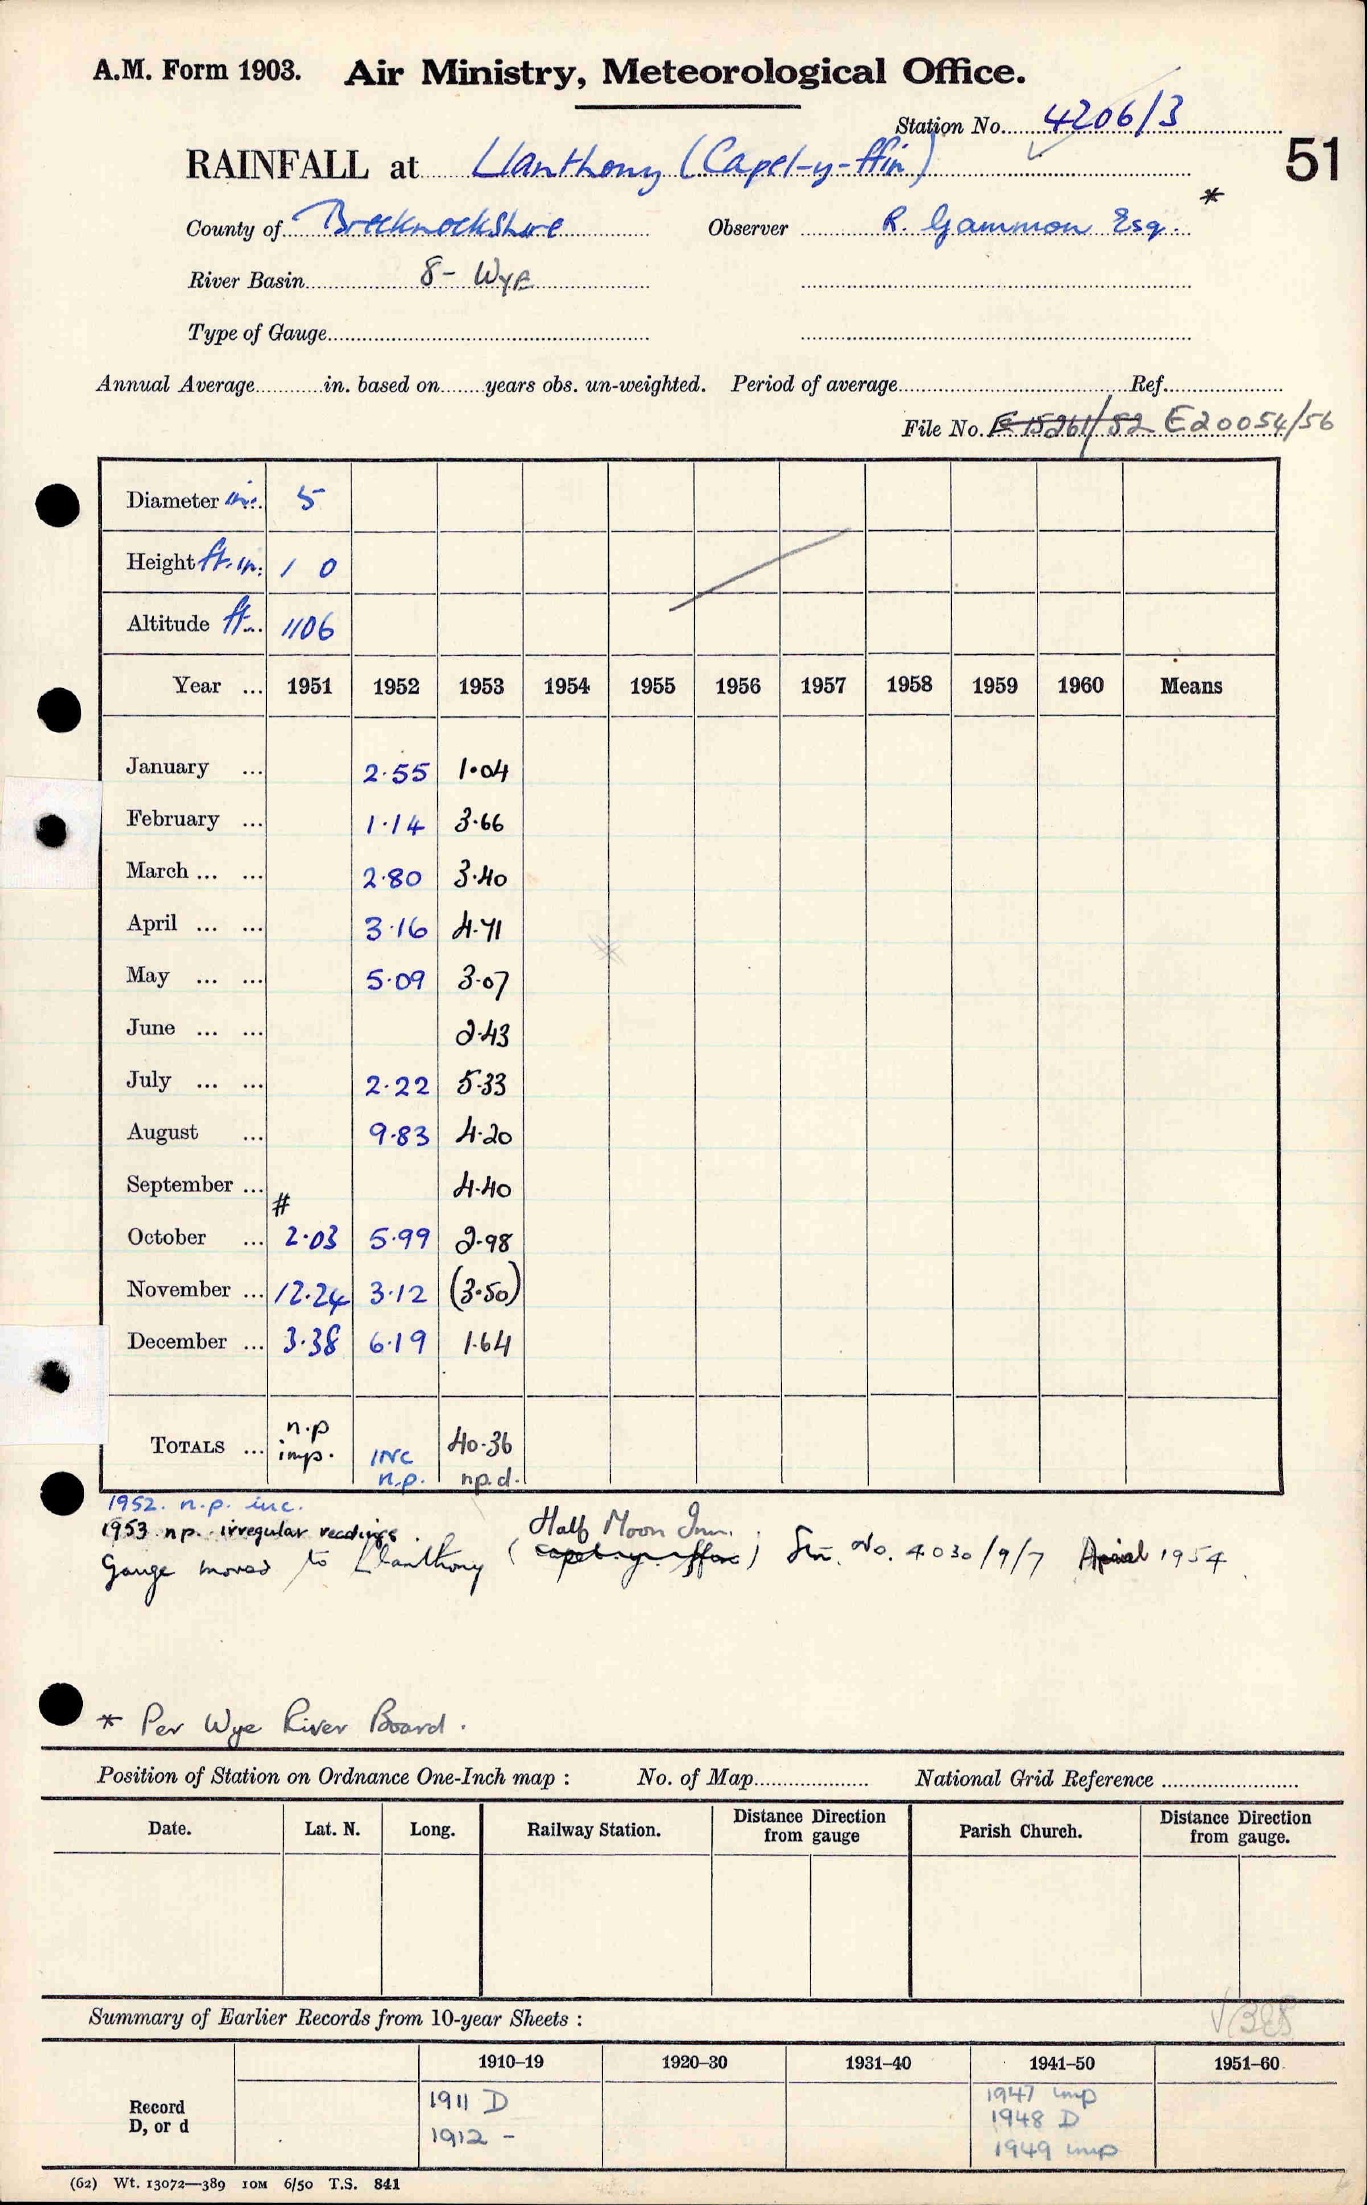 A.M. Form 1903. Air Ministry, Meteorological Office.
Station No. 4206/3
51
RAINFALL at Llanthony (Capel-y-ffin)
*
County of Brecknockshire Observer R. Gammon Esq.
River Basin 8 - Wye
Type of Gauge
Annual Average in. based on years obs. un-weighted. Period of average Ref.
File No. E 15261/52 E20054/56
Diameter in. 5
Height ft. in. 1 0
Altitude ft. 1106
Year ... 1951 1952 1953 1954 1955 1956 1957 1958 1959 1960 Means
January ... 2.55 1.04
February ... 1.14 3.66
March ... ... 2.80 3.40
April ... ... 3.16 4.71
May ... ... 5.09 3.07
June ... ... 2.43
July ... ... 2.22 5.33
August ... 9.83 4.20
September ... # 4.40
October ... 2.03 5.99 2.98
November ... 12.24 3.12 (3.50)
December ... 3.38 6.19 1.64
TOTALS ... n.p imp. INC n.p. 40.36 np.d.
1952. n.p. inc.
1953 n.p. irregular readings.
Half Moon Inn.
Gauge moved to Llanthony (Capel-y-ffin) Stn. No. 4030/9/7 April 1954
* Per Wye River Board.
Position of Station on Ordnance One-Inch map : No. of Map National Grid Reference
Date. Lat. N. Long. Railway Station. Distance Direction from gauge Parish Church. Distance Direction from gauge.
Summary of Earlier Records from 10-year Sheets :
1910–19 1920–30 1931–40 1941–50 1951–60
Record D, or d
1911 D 1947 imp
1912 - 1948 D
1949 imp
(62) Wt. 13072—389 10M 6/50 T.S. 841